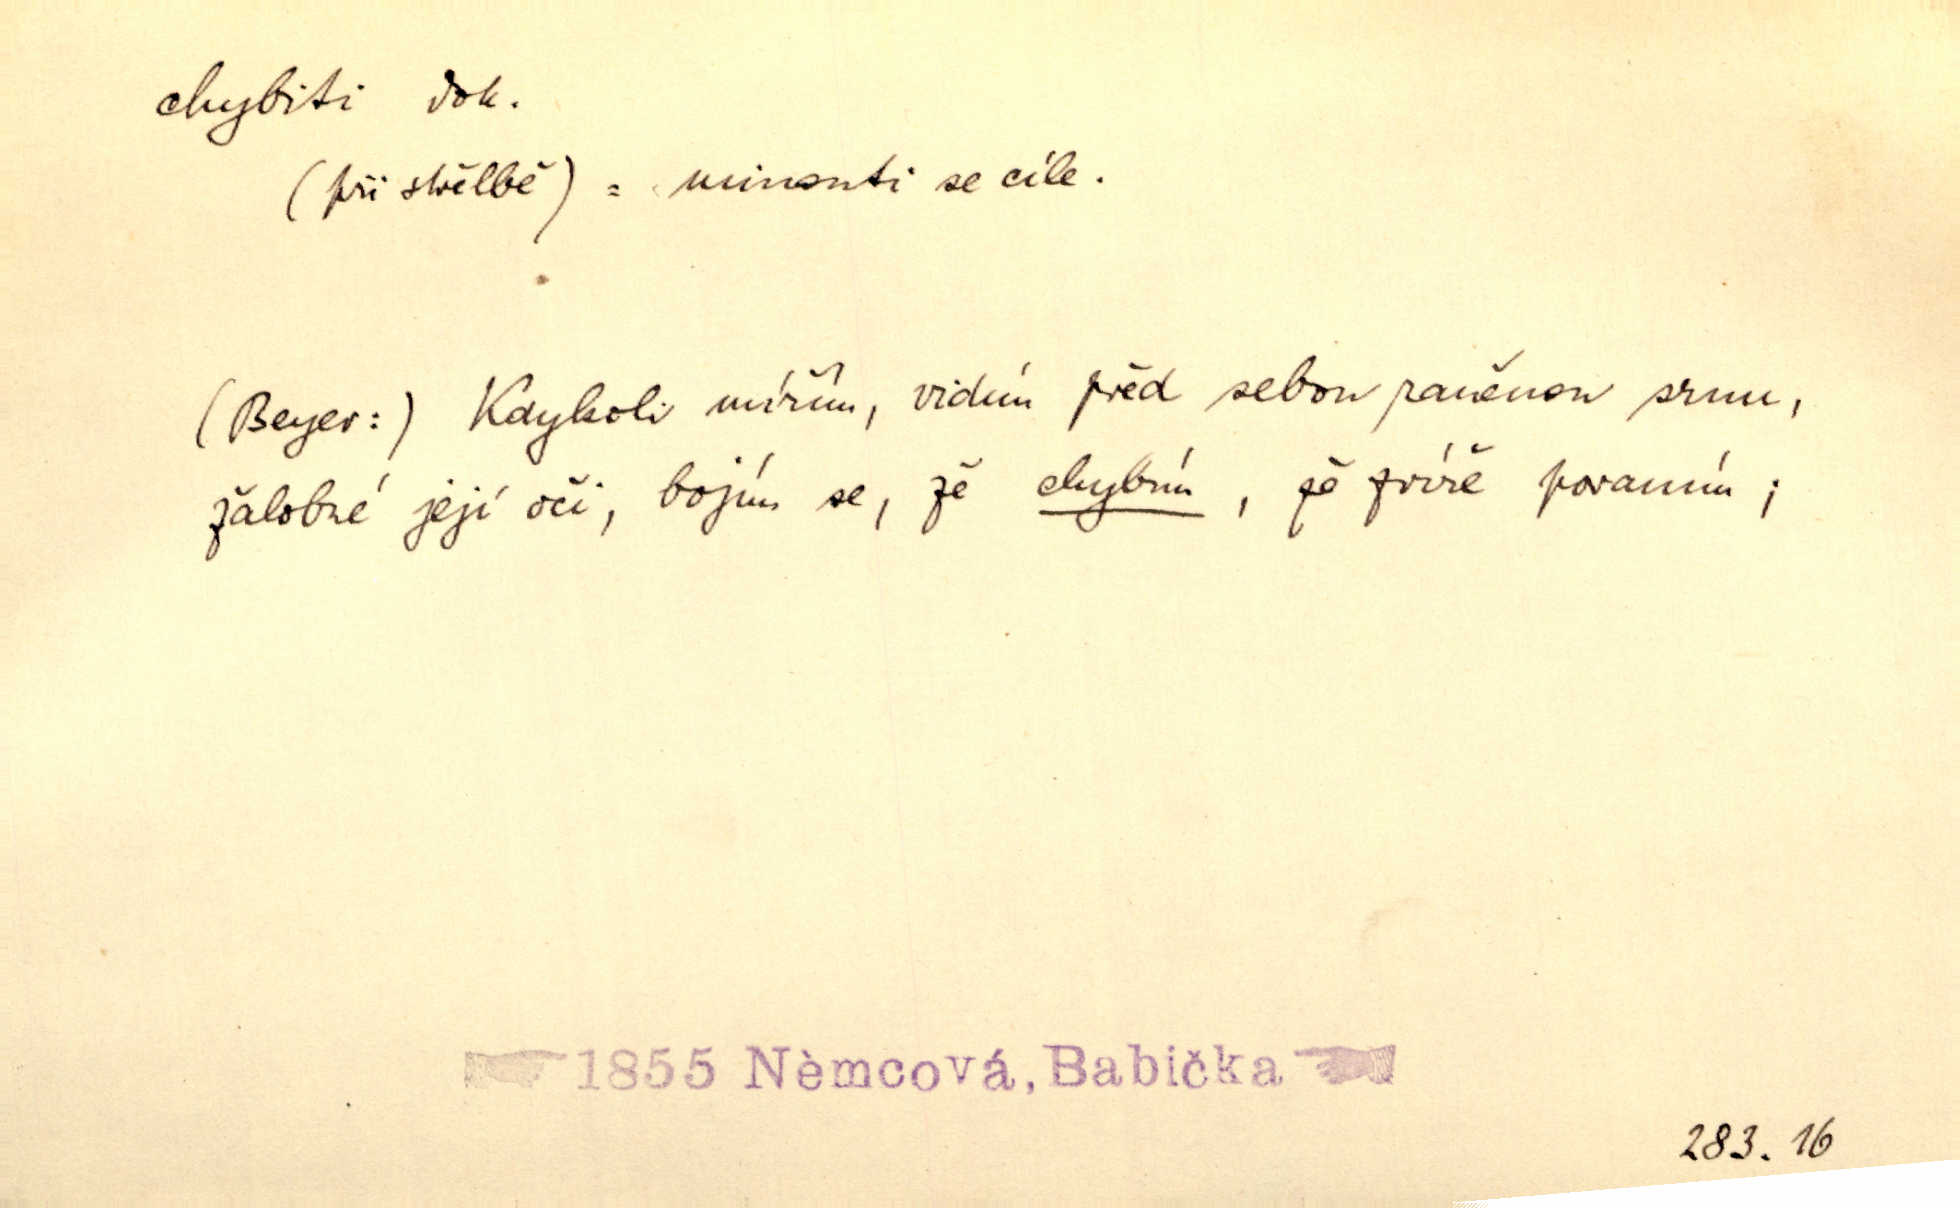 chybiti dok.
(při střelbě) = minouti se cíle.
(Beyer:) Kdykoli mířím, vidím před sebou raněnou srnu,
žalobné její oči, bojím se, že chybím, že zvíře poraním;
1855 Němcová, Babička
283. 16